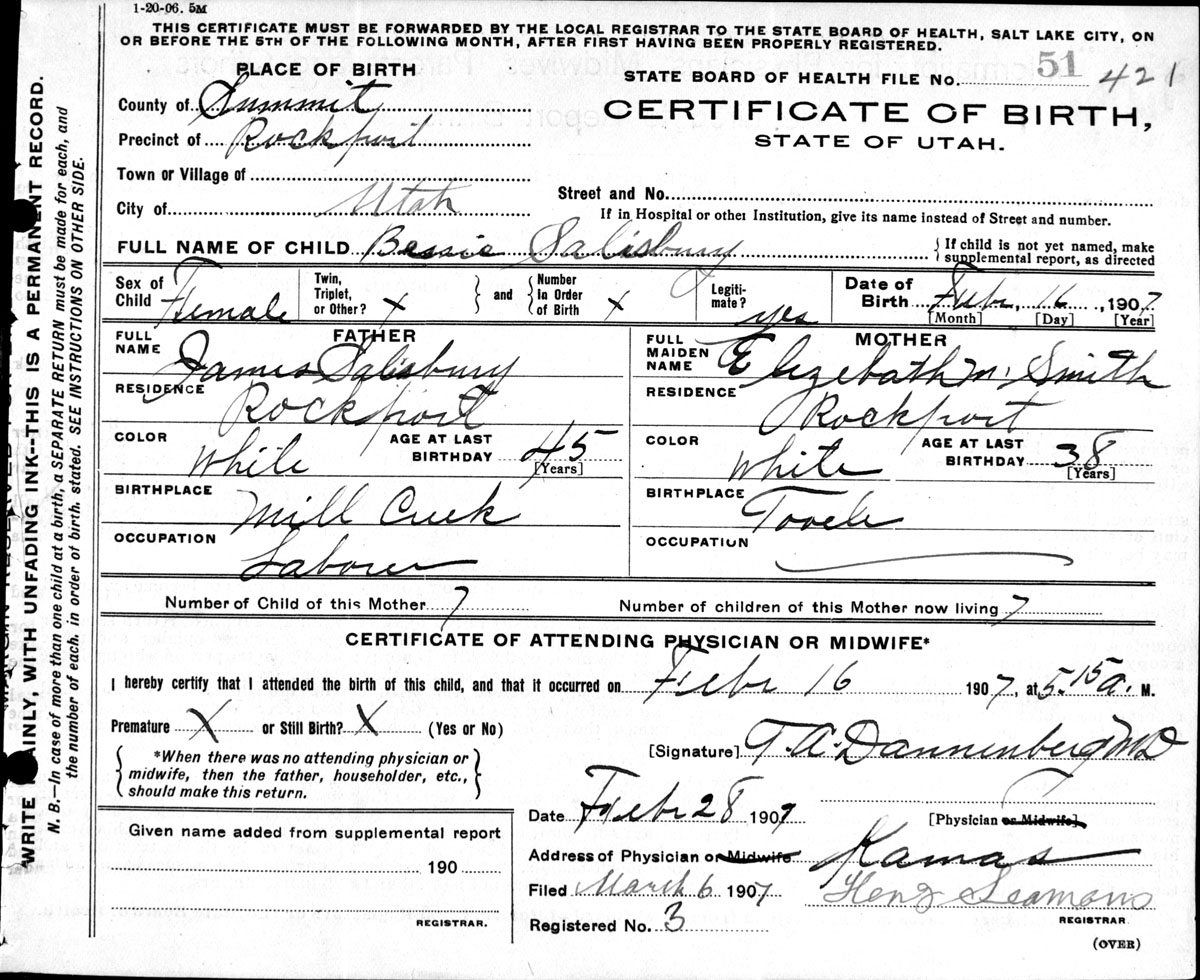 1-20-06. 5M
THIS CERTIFICATE MUST BE FORWARDED BY THE LOCAL REGISTRAR TO THE STATE BOARD OF HEALTH, SALT LAKE CITY, ON
OR BEFORE THE 5TH OF THE FOLLOWING MONTH, AFTER FIRST HAVING BEEN PROPERLY REGISTERED.
PLACE OF BIRTH
County of Summit
Precinct of Rockport
Town or Village of
City of Utah
STATE BOARD OF HEALTH FILE No. 51 421
CERTIFICATE OF BIRTH,
STATE OF UTAH.
Street and No.
If in Hospital or other Institution, give its name instead of Street and number.
FULL NAME OF CHILD Bessie Salisbury
{ If child is not yet named, make
supplemental report, as directed
Sex of Child Female
Twin, Triplet, or Other? X } and { Number In Order of Birth X
Legiti-mate? yes
Date of Birth Febr 16, 1907
[Month] [Day] [Year]
FATHER
FULL NAME James Salisbury
RESIDENCE Rockport
COLOR White AGE AT LAST BIRTHDAY 45
[Years]
BIRTHPLACE Mill Creek
OCCUPATION Laborer
MOTHER
FULL MAIDEN NAME Elizebath M. Smith
RESIDENCE Rockport
COLOR White AGE AT LAST BIRTHDAY 38
[Years]
BIRTHPLACE Tooele
OCCUPATION
Number of Child of this Mother 7 Number of children of this Mother now living 7
CERTIFICATE OF ATTENDING PHYSICIAN OR MIDWIFE*
I hereby certify that I attended the birth of this child, and that it occurred on Febr 16 1907, at 5-15 a. M.
Premature X or Still Birth? X (Yes or No)
{ *When there was no attending physician or
midwife, then the father, householder, etc.,
should make this return. }
[Signature] T. A. Dannenberg MD
Date Febr 28 1907 [Physician or Midwife]
Address of Physician or Midwife Kamas
Filed March 6 1907 Seamons
REGISTRAR.
Registered No. 3
(OVER)
Given name added from supplemental report
190
REGISTRAR.
WRITE PLAINLY, WITH UNFADING INK--THIS IS A PERMANENT RECORD.
N. B.—In case of more than one child at a birth, a SEPARATE RETURN must be made for each, and
the number of each. in order of birth. stated. SEE INSTRUCTIONS ON OTHER SIDE.